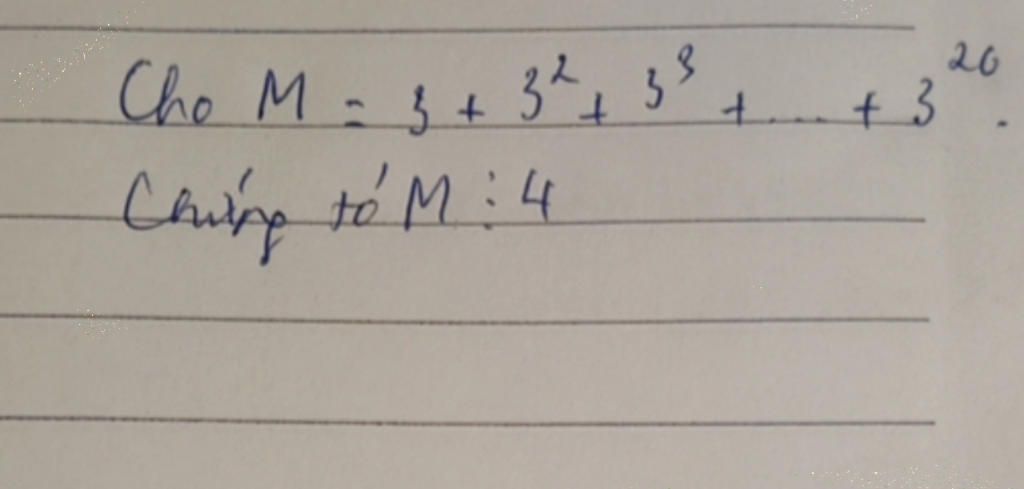 Cho M = 3 + 3² + 3³ + .... + 3²⁰.
Chứng tỏ M ⋮ 4